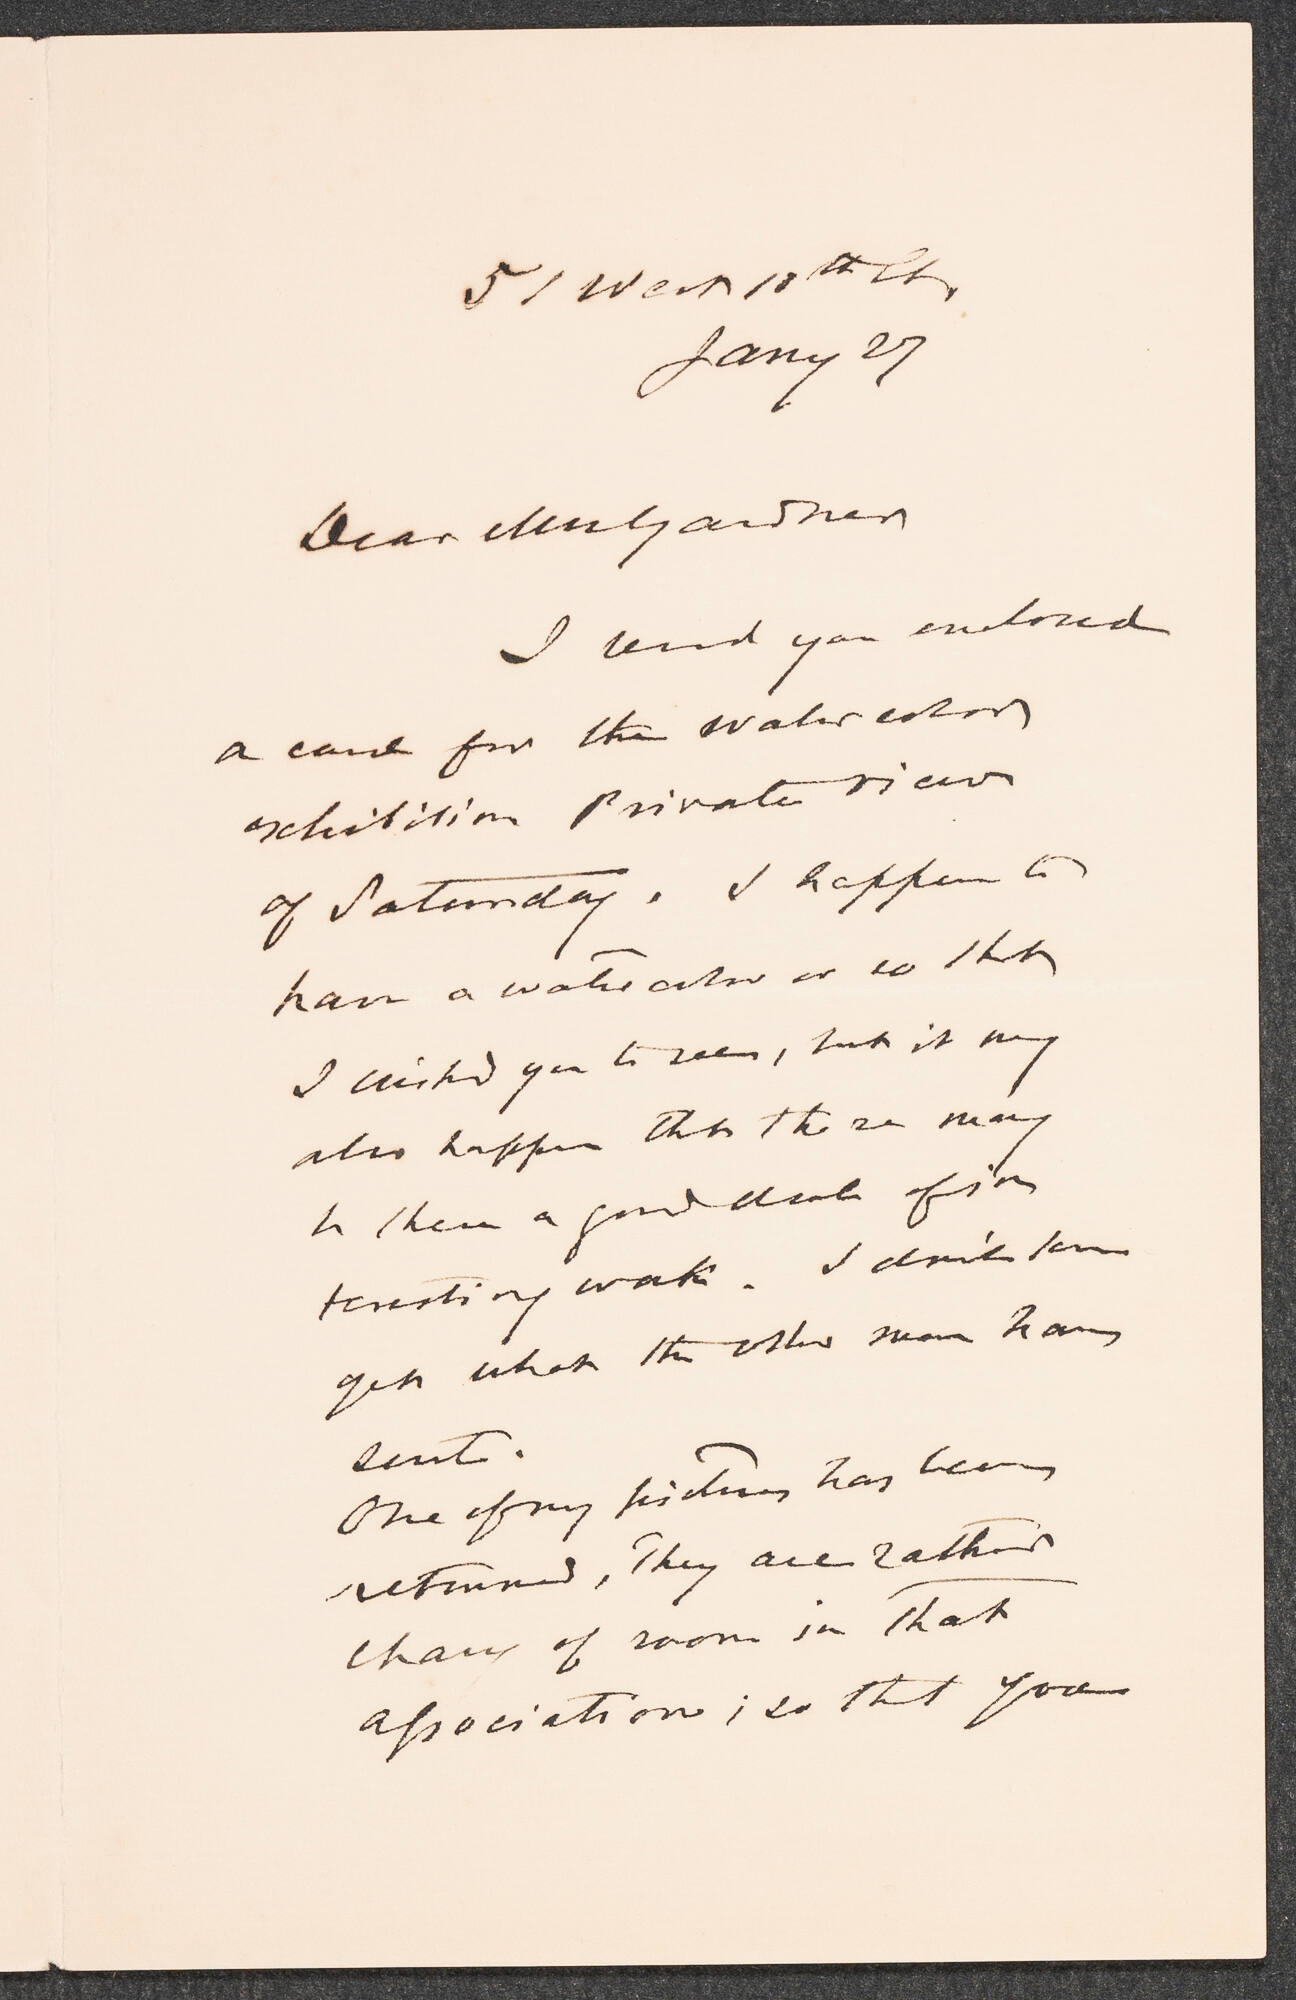 51 West 10th St.
Jany 27
Dear Mrs Gardner
I send you enclosed
a card for the water color
exhibition Private view
of Saturday. I happen to
have a water color or so that
I wished you to see, but it may
also happen that there may
be there a good deal of in
teresting work. I don't know
yet what the other men have
sent.
One of my pictures has been
returned, They are rather
chary of room in that
association; so that you